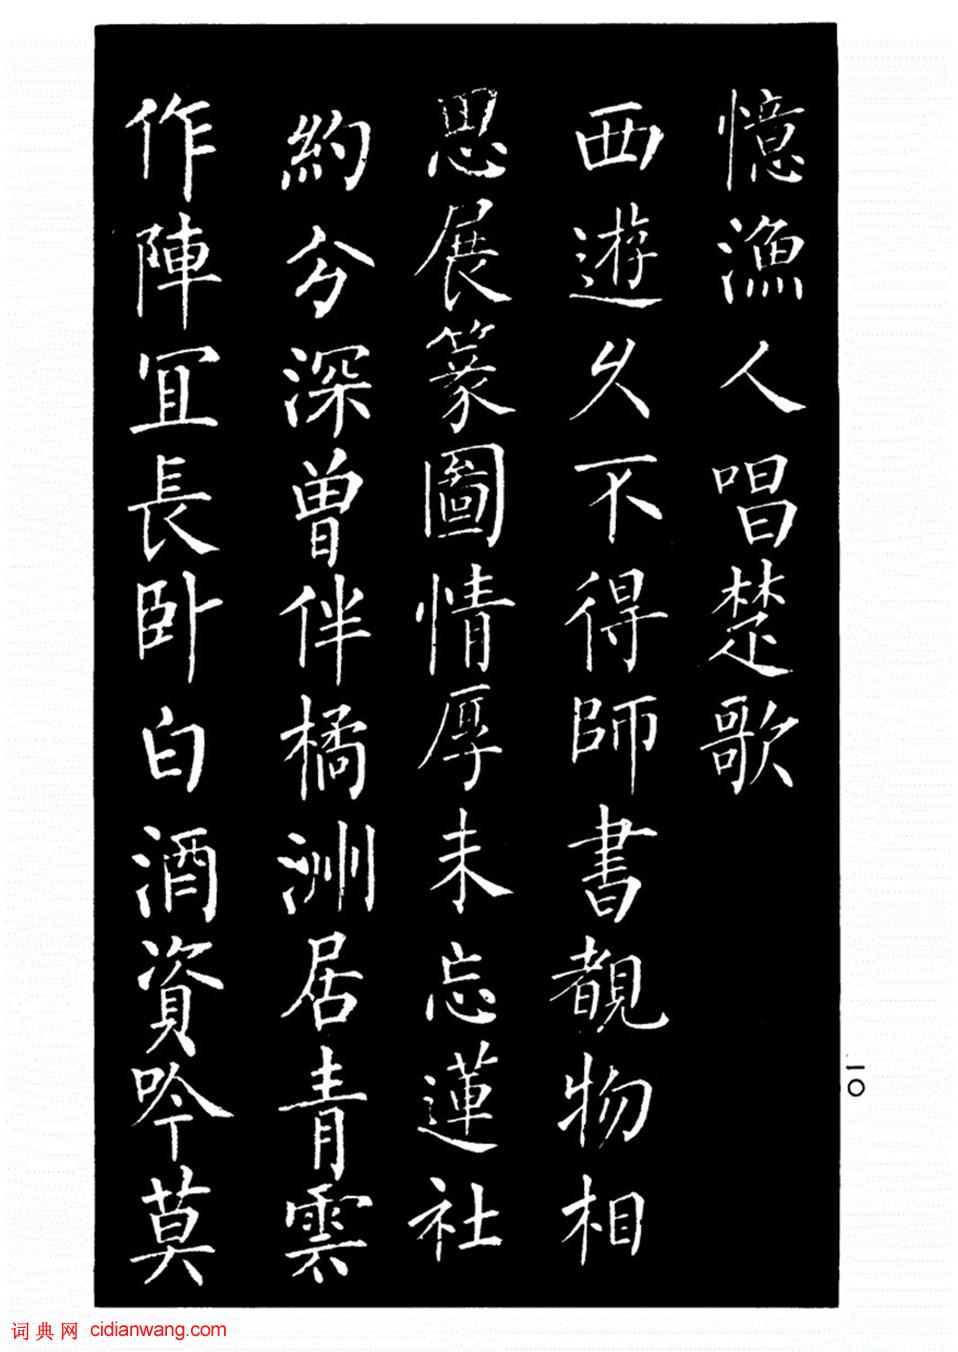 憶漁人唱楚歌
西遊久不得師書覩物相
思展篆圖情厚未忘蓮社
約分深曾伴橘洲居青雲
作陣冝長卧白酒資吟莫
一〇
词典网 cidianwang.com